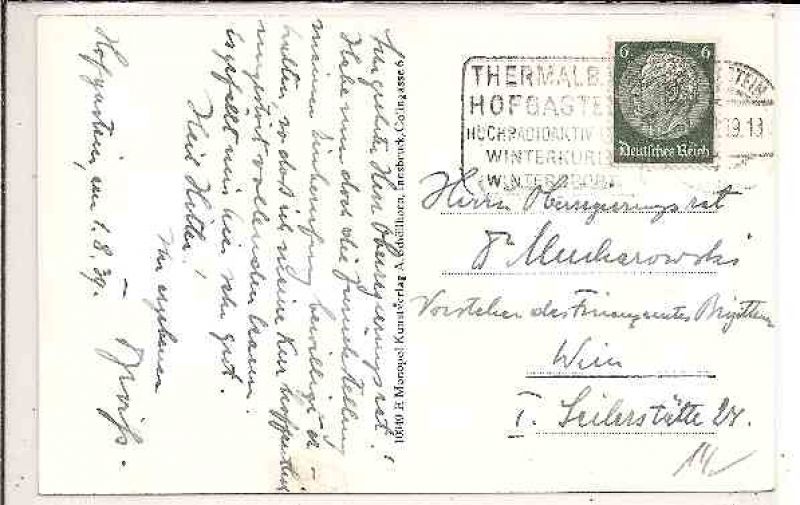 Hofgastein, am 1. 8. 39.
Sehr geehrter Herr Oberregierungsrat!
Habe nun doch die Zurückstellung
meiner Einberufung bewilligt er-
halten, so daß ich meine Kur hoffentlich
ungestört vollenden kann.
Es gefällt mir hier sehr gut.
Heil Hitler!
Ihr ergebener
10349 E Monopol Kunstverlag A. Schöllhorn, Innsbruck, Colingasse 6
THERMALB
HOFGASTE
HOCHRADIOAKTIV
WINTERKURE
WINTERSPORT
STEIN
39.13
6 6
Deutsches Reich
Herrn Oberregierungsrat
Dr Mucharowski
Vorsteher des Finanzamtes Brigittenau
Wien
I. Seilerstätte 24.